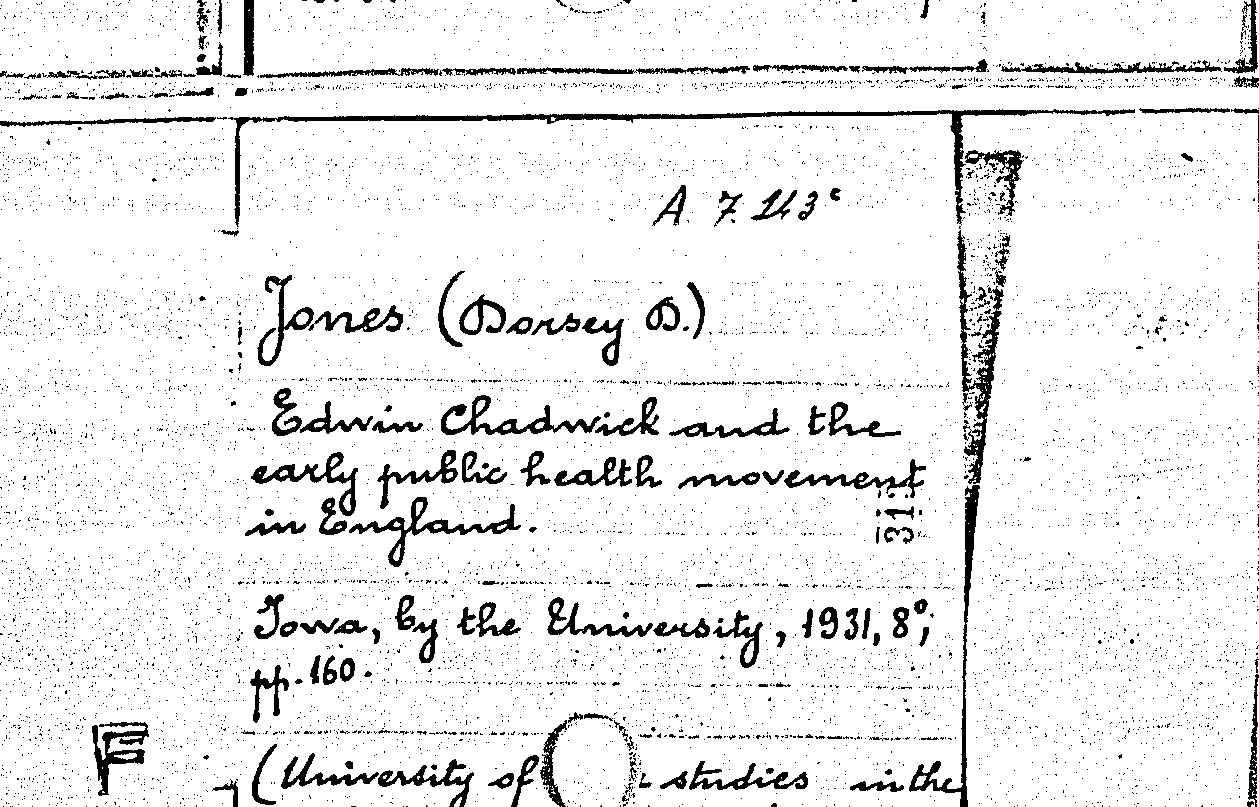 A. 7. 143ᶜ
Jones (Dorsey D.)
Edwin Chadwick and the
early public health movement
in England.
313
Iowa, by the University, 1931, 8º;
pp. 160.
(University of studies in the